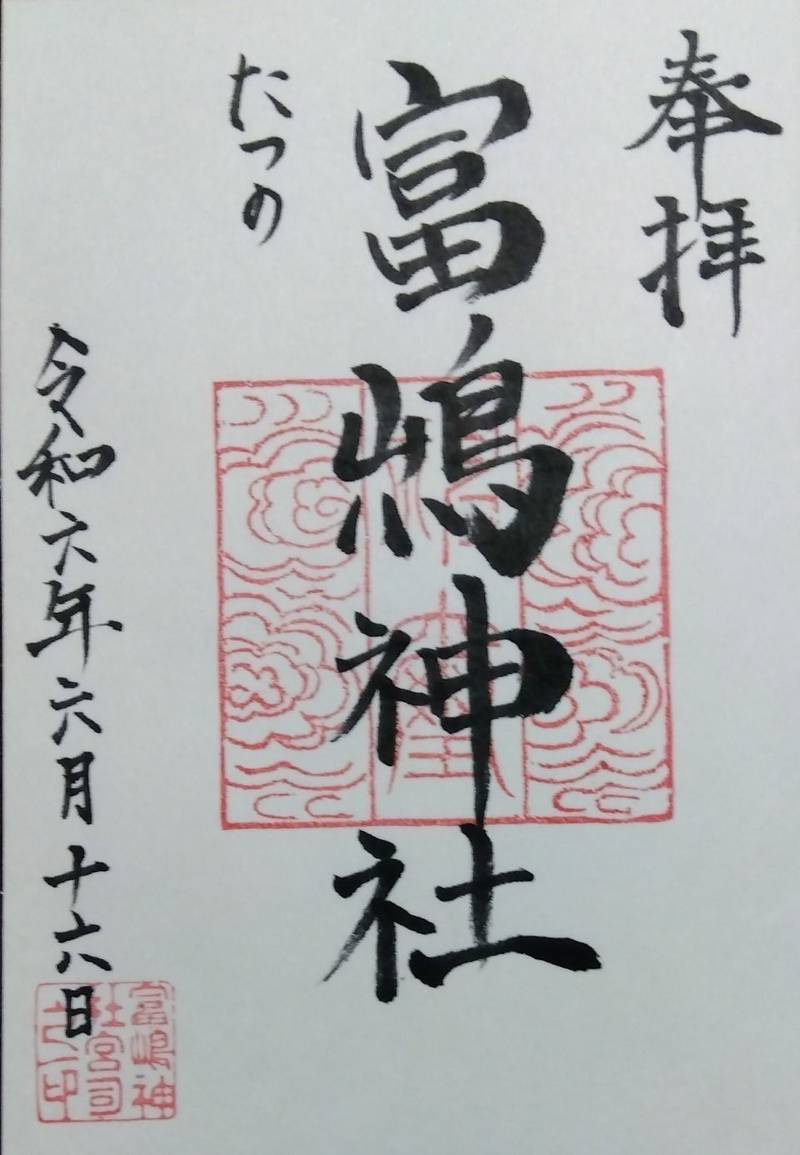 奉拝
富嶋神社
たつの
令和六年六月十六日
富嶋神
社宮司
之印